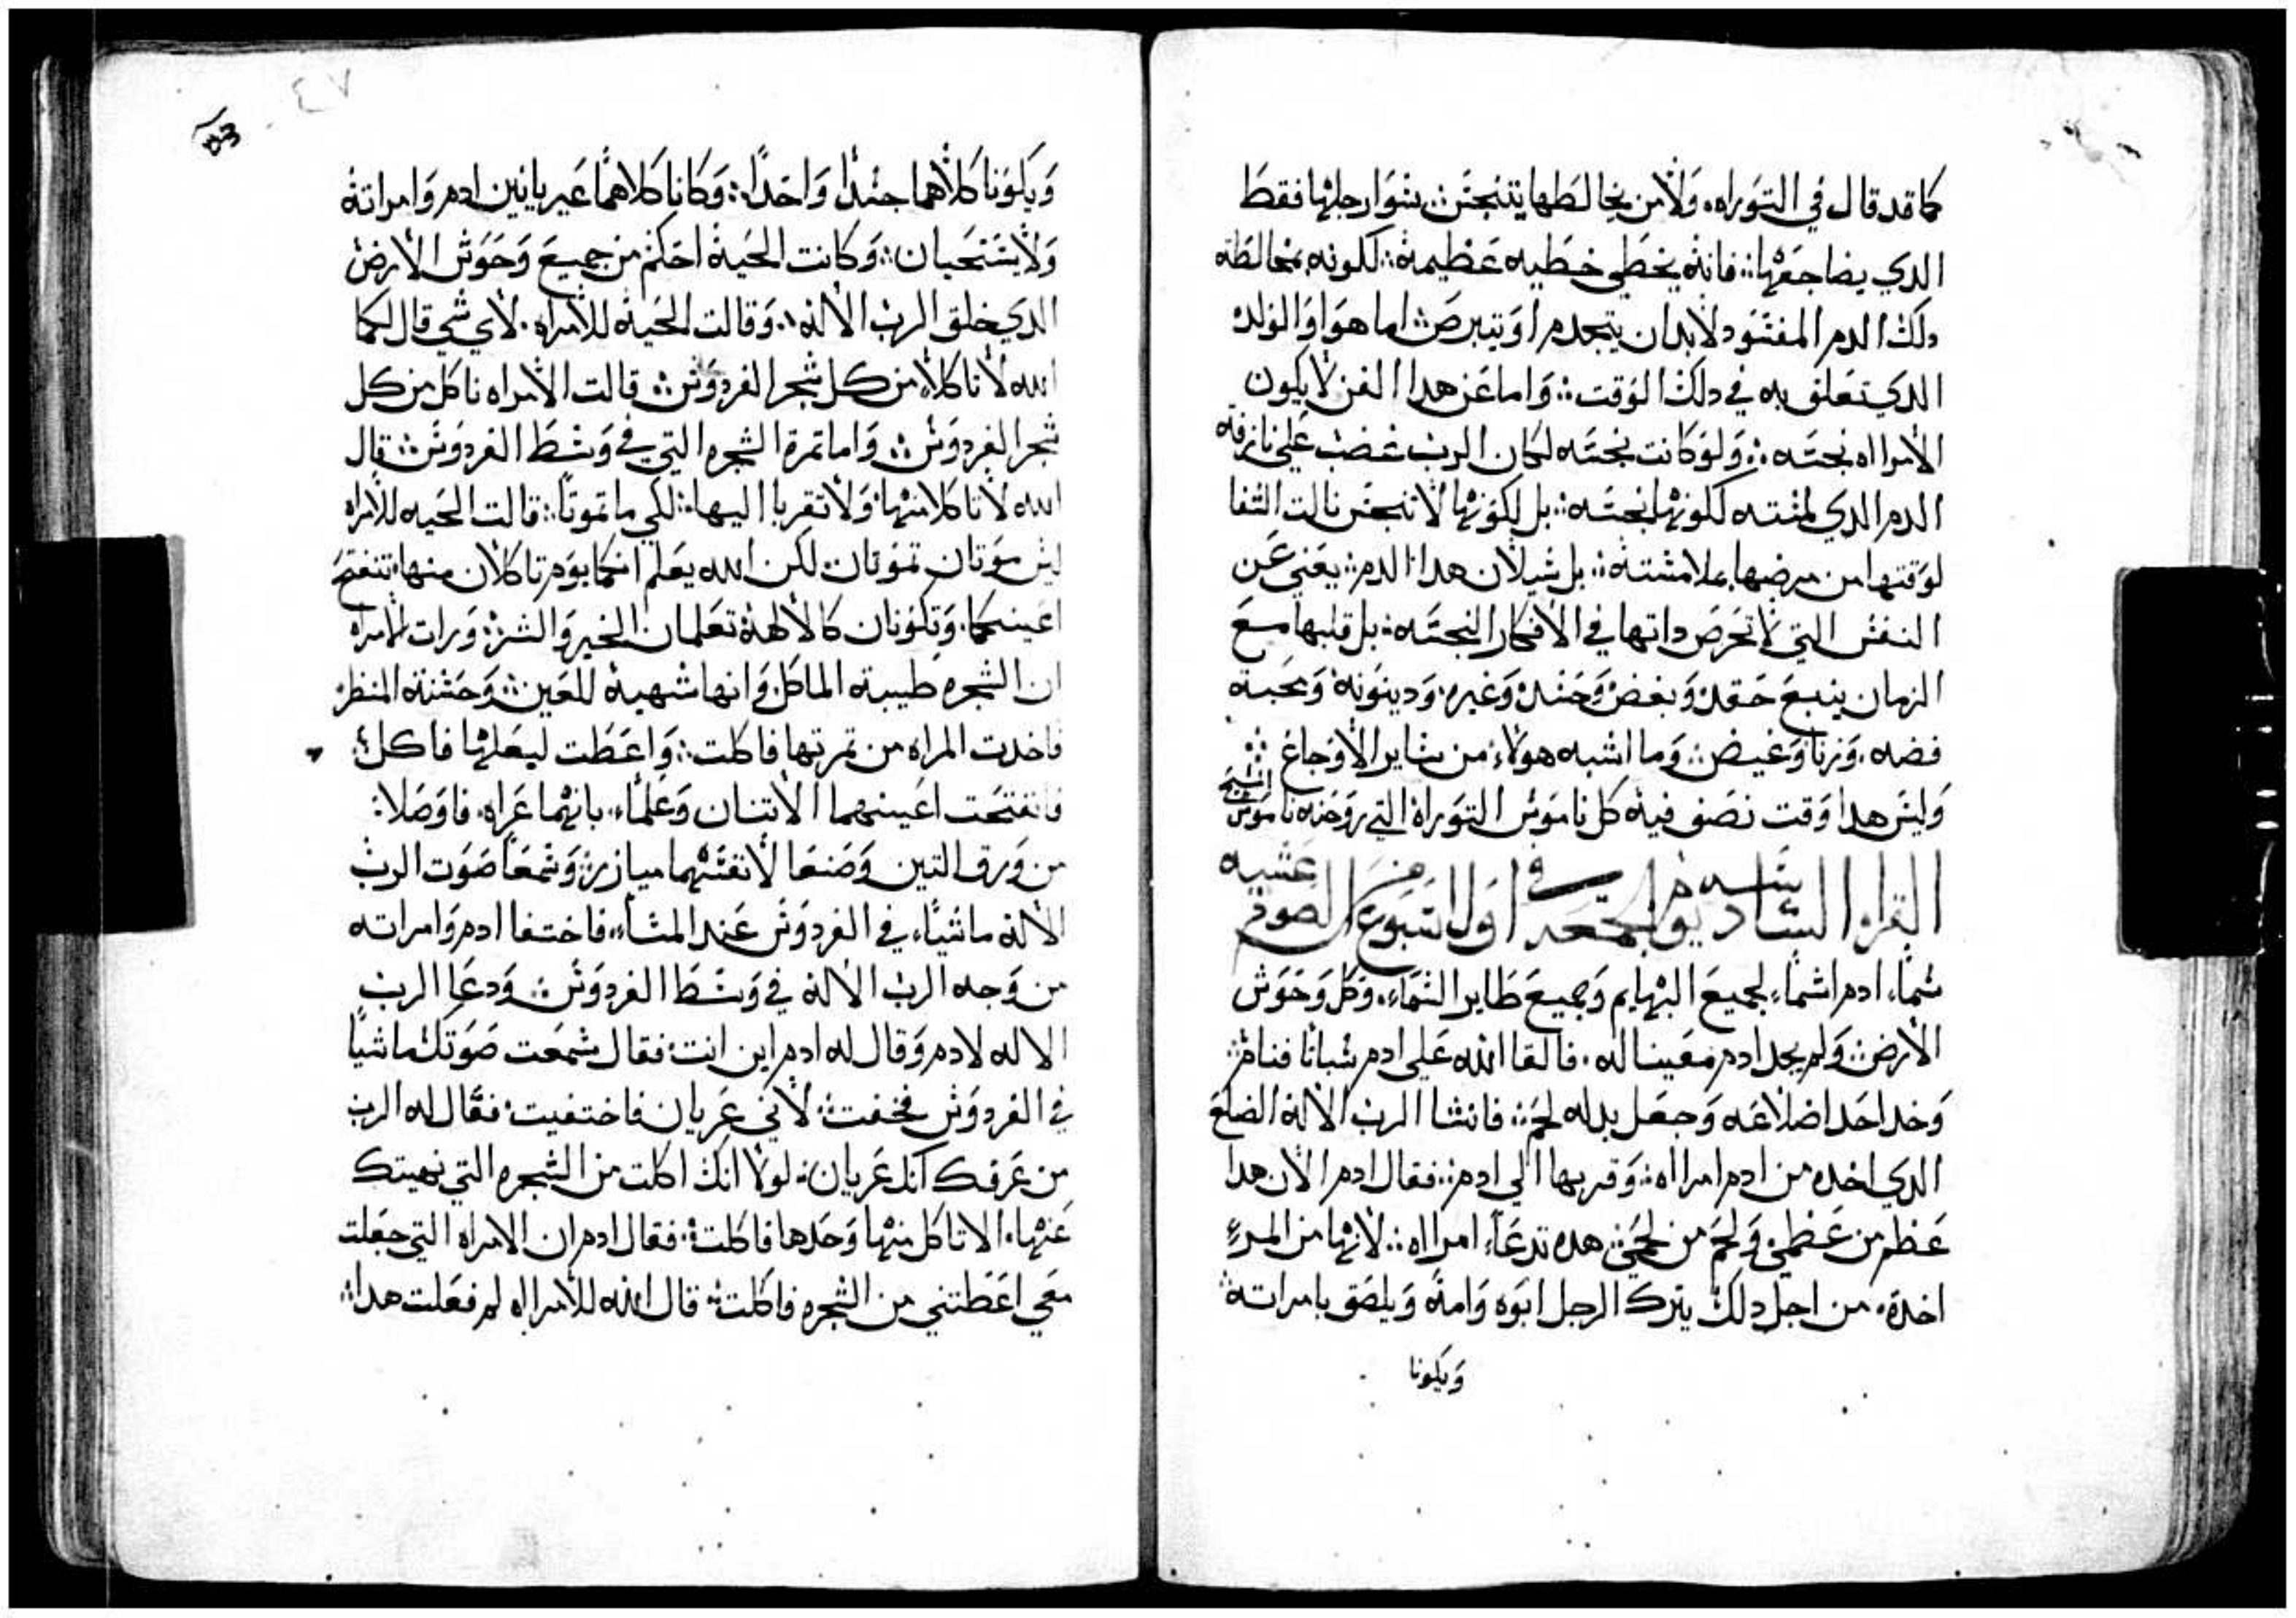 كما قد قال في التوراه. ولامن يخالطها يتنجس: سوا رجلها فقط
الدي يضاجعها: فانه يخطي خطيه عظيمه: لكونه بمخالطه
دلك الدم المفسود لابد ان يتجدم او يتبرص: اما هو او الولد
الدي تعلق به في دلك الوقت: واما عن هدا الفن لا يكون
الامرااه نجسه: ولو كانت نجسه لكان الرب غضب علي نازفة
الدم الدي لمسته لكونها نجسه: بل لكونها لا تنجس نالت الشفا
لوقتها من مرضها بملامسته: بل سيلان هدا الدم: يعني عن
النفس التي لا تحرص داتها في الافكار النجسه: بل قلبها مع
الزمان ينبع حقد وبغض وحسد وغيره. ودينونه ومحبة
فضه. وزنا وغيض: وما اشبه هولاء من ساير الاوجاع
وليس هدا وقت نصف فيه كل ناموس التوراه التي روحنه ناموس المسيح
القراه السادسه يوم الجمعه في اول اسبوع من الصوم عشيه
سماء ادم اسماء لجميع البهايم وجميع طاير السماء. وكل وحوش
الارض: ولم يجد ادم معينا له. فالقا الله علي ادم سباتا فنام:
وخد احد اضلاعه وجعل بدله لحم: فانشا الرب الاله الضلع
الدي اخده من ادم امرااه: وقربها الي ادم: فقال ادم الان هدا
عظم من عظمي ولحم من لحمي: هده تدعاء امرااه: لانها من المرء
اخدة. من اجل دلك يترك الرجل ابوه وامه ويلصق بامراته:
ويكونا
ويكونا كلاهما جسدا واحدا: وكانا كلاهما عيريانين ادم وامراته
ولا يستحيان: وكانت الحيه احكم من جميع وحوش الارض
الدي خلق الرب الاله: وقالت الحيه للامراه. لاي شي قال لكما
الله لا تاكلا من كل شجر الفردوس: قالت الامراه ناكل من كل
شجر الفردوس: واما تمرة الشجره التي في وسط الفردوس: قال
الله لا تاكلا منها ولا تقربا اليها: لكي ما تموتا: قالت الحيه للامراه
ليس موتان تموتان: لكن الله يعلم انكما يوم تاكلان منها تنفتح
اعينكما. وتكونان كالالهة تعلمان الخير والشر: ورات الامراه
ان الشجره طيبة الماكل وانها شهية للعين: وحسنة المنظر
فاخدت المراه من تمرتها فاكلت: واعطت لبعلها فاكل:
فانفتحت اعينهما الاتنان وعلماء بانهما عراه. فاوصلا:
من ورق التين وصنعا لانفسهما ميازر: وسمعا صوت الرب
الاله ماشياء في الفردوس عند المساء: فاختفا ادم وامراته
من وجه الرب الاله في وسط الفردوس: ودعا الرب
الاله لادم وقال له ادم اين انت: فقال سمعت صوتك ماشيا
في الفردوس فخفت: لاني عريان فاختفيت: فقال له الرب
من عرفك انك عريان: لولا انك اكلت من الشجره التي نهيتك
عنها. الا تاكل منها وحدها فاكلت: فقال ادم ان الامراه التي جعلت
معي اعطتني من الشجره فاكلت: قال الله للامرااه لم فعلت هدا: